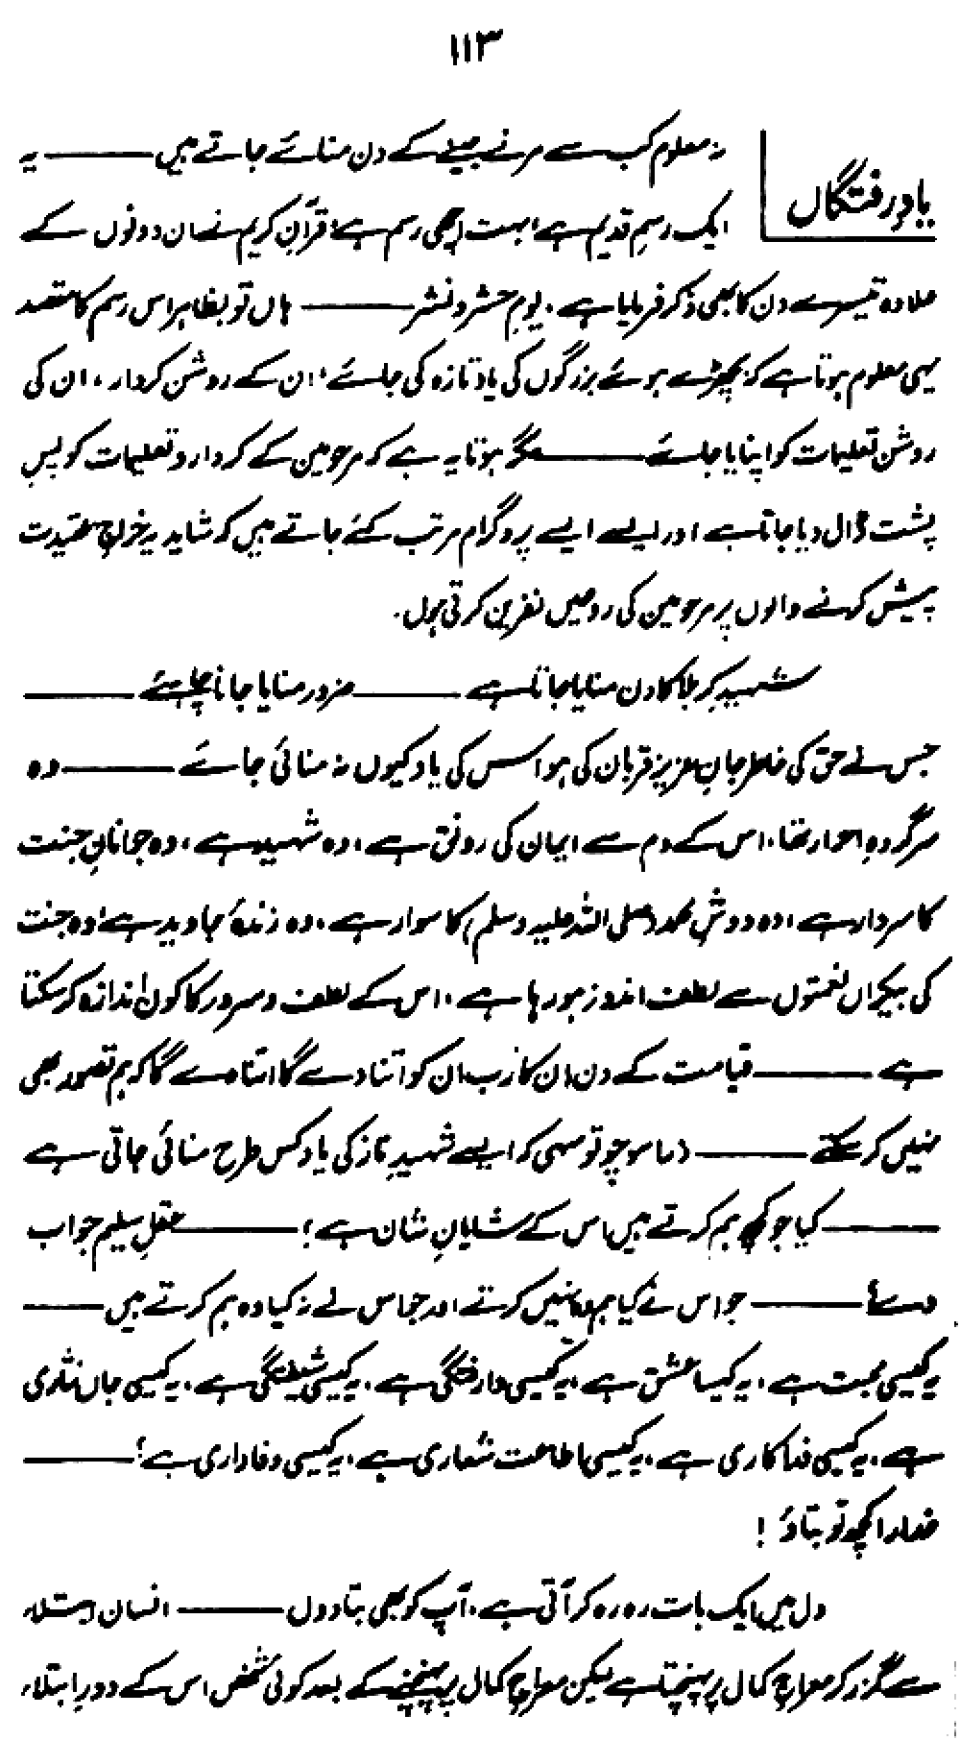 ۱۱۳
یادِ رفتگاں
نہ معلوم کب سے مرنے جینے کے دن منائے جاتے ہیں ——— یہ
ایک رسمِ قدیم ہے، بہت اچھی رسم ہے، قرآنِ کریم نے ان دونوں کے
علاوہ تیسرے دن کا بھی ذکر فرمایا ہے، یومِ حشر و نشر ——— ہاں تو بظاہر اس رسم کا مقصد
یہی معلوم ہوتا ہے کہ بچھڑے ہوئے بزرگوں کی یاد تازہ کی جائے، ان کے روشن کردار، ان کی
روشن تعلیمات کو اپنایا جائے ——— مگر ہوتا یہ ہے کہ مرحومین کے کردار و تعلیمات کو پسِ
پشت ڈال دیا جاتا ہے اور ایسے ایسے پروگرام مرتب کئے جاتے ہیں کہ شاید یہ خراجِ عقیدت
پیش کرنے والوں پر مرحومین کی روحیں نفرین کرتی ہوں۔
شہیدِ کربلا کا دن منایا جاتا ہے ——— ضرور منایا جانا چاہئے ———
جس نے حق کی خاطر جانِ عزیز قربان کی ہو اس کی یاد کیوں نہ منائی جائے ——— وہ
سرگروہِ احرار تھا، اس کے دم سے ایمان کی رونق ہے، وہ شہید ہے، وہ جوانانِ جنت
کا سردار ہے، وہ دوشِ محمد (صلی اللہ علیہ وسلم) کا سوار ہے، وہ زندۂ جاوید ہے، وہ جنت
کی بیکراں نعمتوں سے لطف اندوز ہو رہا ہے، اس کے لطف و سرور کا کون اندازہ کر سکتا
ہے ——— قیامت کے دن ان کا رب ان کو اتنا دے گا اتنا دے گا کہ ہم تصور بھی
نہیں کر سکتے ——— ذرا سوچو تو سہی کہ ایسے شہیدِ ناز کی یاد کس طرح منائی جاتی ہے
——— کیا جو کچھ ہم کرتے ہیں اس کے شایانِ شان ہے؟ ——— عقلِ سلیم جواب
دے! ——— جو اس نے کیا ہم وہ نہیں کرتے اور جو اس نے نہ کیا وہ ہم کرتے ہیں ———
یہ کیسی محبت ہے، یہ کیسا عشق ہے، یہ کیسی وارفتگی ہے، یہ کیسی شیفتگی ہے، یہ کیسی جاں نثاری
ہے، یہ کیسی فداکاری ہے، یہ کیسی اطاعت شعاری ہے، یہ کیسی وفاداری ہے؟ ———
خدارا کچھ تو بتاؤ!
دل میں ایک بات رہ رہ کر آتی ہے، آپ کو بھی بتا دوں ——— انسان ابتلاء
سے گزر کر معراجِ کمال پر پہنچتا ہے لیکن معراجِ کمال پر پہنچنے کے بعد کوئی شخص اس کے دورِ ابتلاء